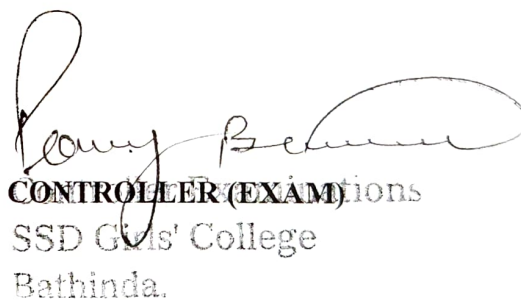 CONTROLLER (EXAM)
Controller Examinations
SSD Girls' College
Bathinda.